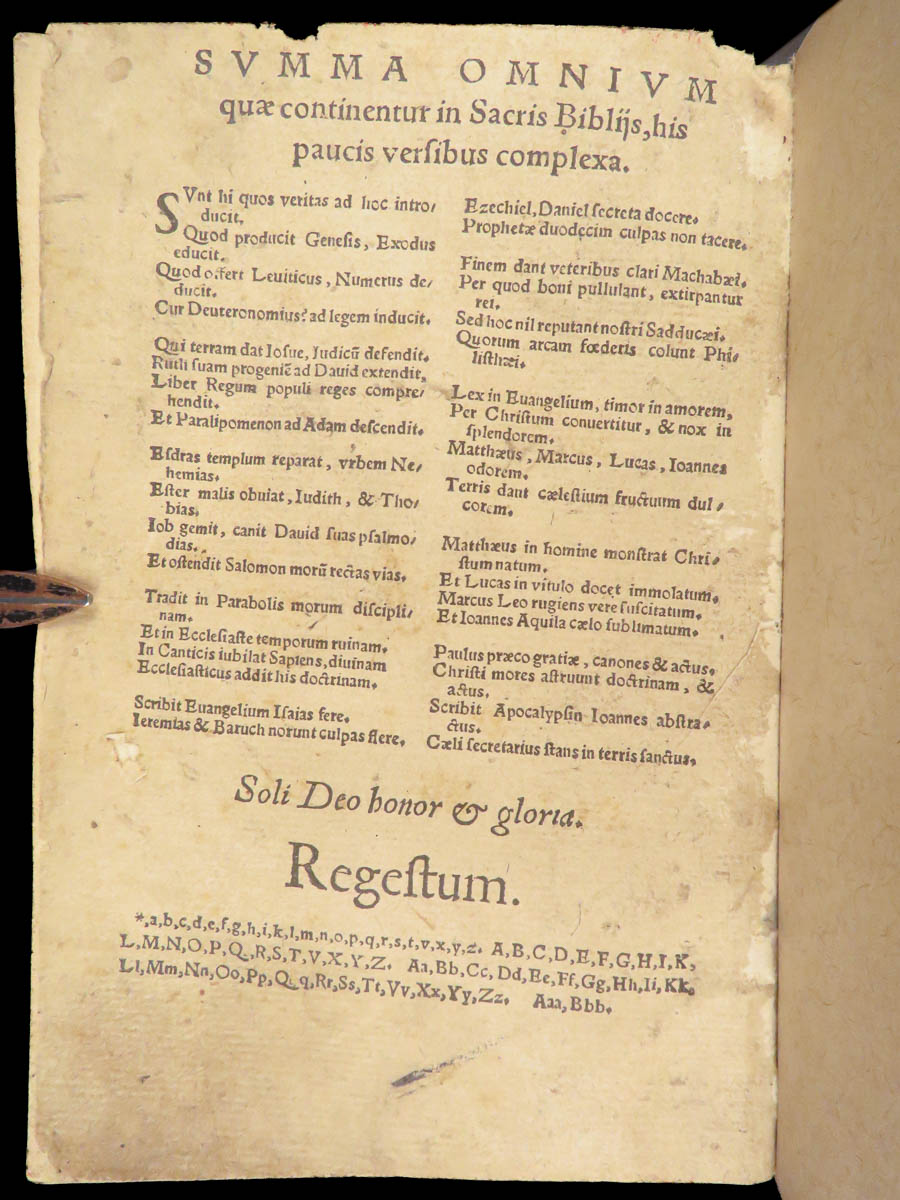 SVMMA OMNIVM
quæ continentur in Sacris Biblijs, his
paucis verſibus complexa.
SVnt hi quos veritas ad hoc intro/
ducit.
Quod producit Geneſis, Exodus
educit.
Quod offert Leuiticus, Numerus de/
ducit.
Cur Deuteronomius? ad legem inducit.
Qui terram dat Ioſue, Iudicū defendit.
Ruth ſuam progeniē ad Dauid extendit,
Liber Regum populi reges compre/
hendit.
Et Paralipomenon ad Adam deſcendit.
Eſdras templum reparat, vrbem Ne/
hemias.
Eſter malis obuiat, Iudith, & Tho/
bias.
Iob gemit, canit Dauid ſuas pſalmo/
dias.
Et oſtendit Salomon morū rectas vias.
Tradit in Parabolis morum diſcipli/
nam.
Et in Eccleſiaſte temporum ruinam.
In Canticis iubilat Sapiens, diuinam
Eccleſiaſticus addit his doctrinam.
Scribit Euangelium Iſaias fere.
Ieremias & Baruch norunt culpas flere.
Ezechiel, Daniel ſecreta docere.
Prophetæ duodecim culpas non tacere.
Finem dant veteribus clari Machabæi.
Per quod boni pullulant, extirpantur
rei.
Sed hoc nil reputant noſtri Sadducæi.
Quorum arcam fœderis colunt Phi/
liſthæi.
Lex in Euangelium, timor in amorem,
Per Chriſtum conuertitur, & nox in
ſplendorem.
Matthæus, Marcus, Lucas, Ioannes
odorem.
Terris dant cæleſtium fructuum dul/
corem.
Matthæus in homine monſtrat Chri/
ſtum natum.
Et Lucas in vitulo docet immolatum.
Marcus Leo rugiens vere ſuſcitatum.
Et Ioannes Aquila cælo ſublimatum.
Paulus præco gratiæ, canones & actus.
Chriſti mores aſtruunt doctrinam, &
actus.
Scribit Apocalypſin Ioannes abſtra/
ctus.
Cæli ſecretarius ſtans in terris ſanctus.
Soli Deo honor & gloria.
Regeſtum.
*,a,b,c,d,e,f,g,h,i,k,l,m,n,o,p,q,r,s,t,v,x,y,z. A,B,C,D,E,F,G,H,I,K,
L,M,N,O,P,Q,R,S,T,V,X,Y,Z. Aa,Bb,Cc,Dd,Ee,Ff,Gg,Hh,Ii,Kk.
Ll,Mm,Nn,Oo,Pp,Qq,Rr,Ss,Tt,Vv,Xx,Yy,Zz. Aaa,Bbb.